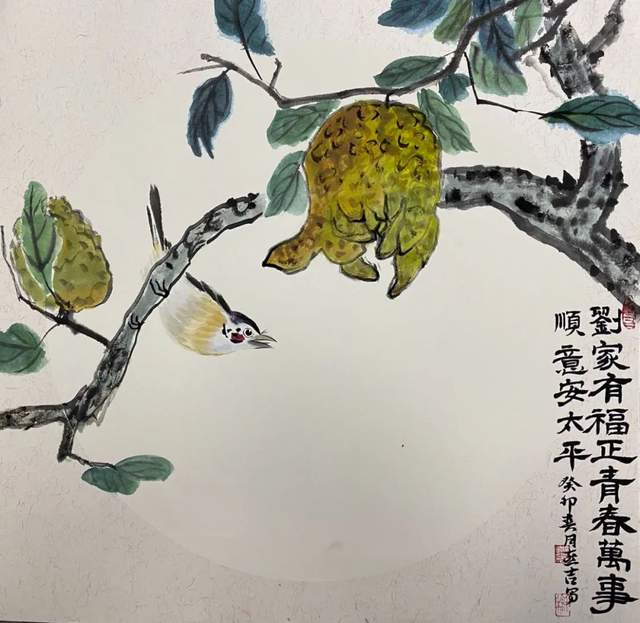 劉家有福正青春萬事
順意安太平
癸卯春月並吉寫